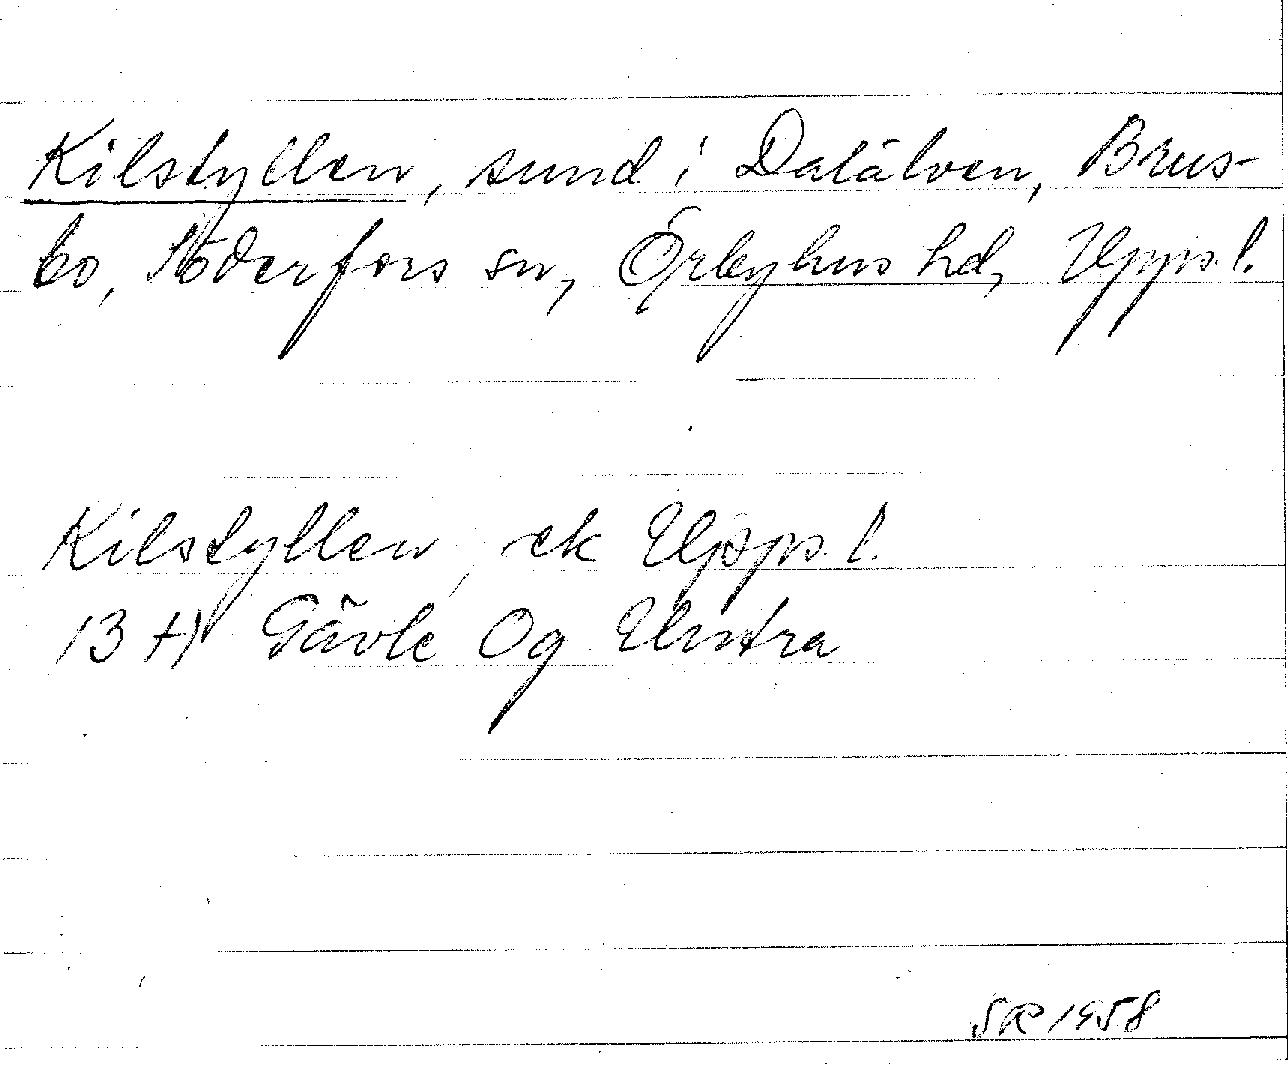 Kilstyllen, sund i Dalälven, Brus-
bo, Söderfors sn, Örbyhus hd, Upps. l.
Kilstyllen, ek Upps. l.
13 H Gävle Og
SR 1958